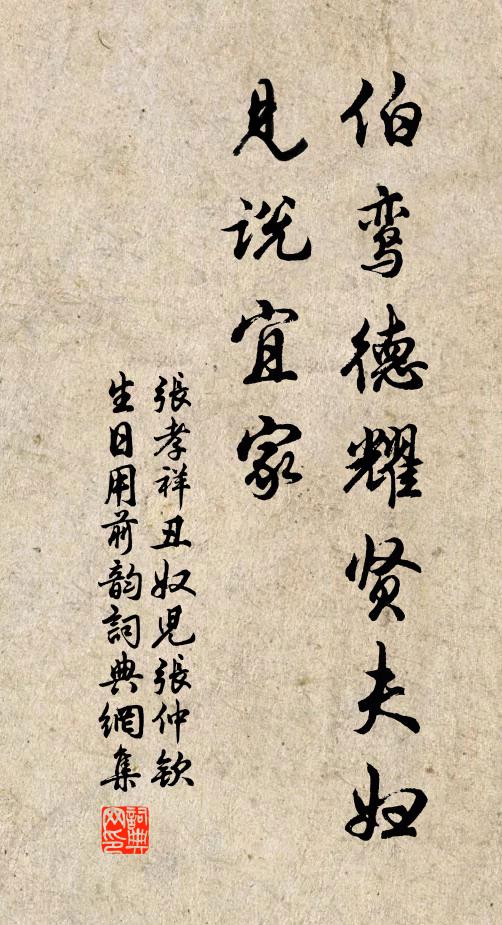 伯鸾德耀贤夫妇
见说宜家
張孝祥丑奴兒張仲欽
生日用前韵詞典網集
詞典
网印